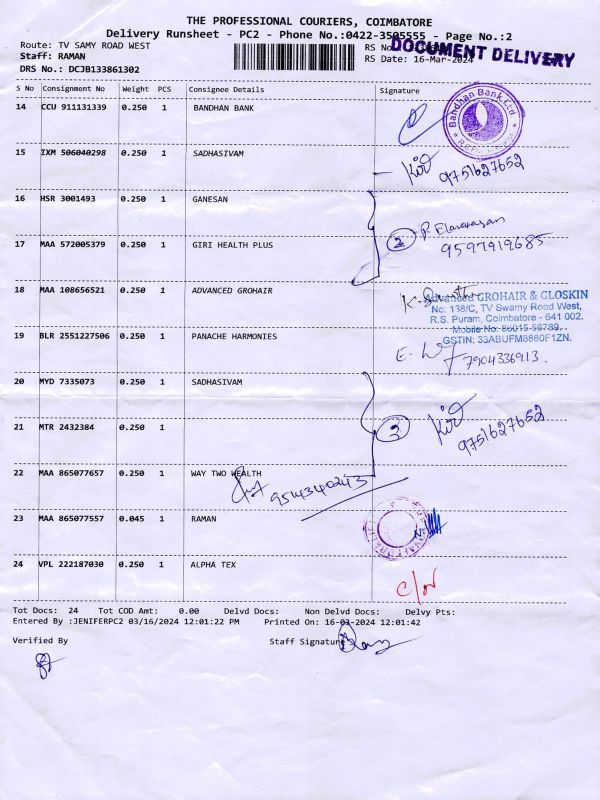 THE PROFESSIONAL COURIERS, COIMBATORE
Delivery Runsheet - PC2 - Phone No.:0422-3505555 - Page No.:2
Route: TV SAMY ROAD WEST
RS No.
DOCUMENT DELIVERY
Staff: RAMAN
RS Date: 16-Mar-2024
DRS No.: DCJB133861302
S No Consignment No Weight PCS Consignee Details Signature
14 CCU 911131339 0.250 1 BANDHAN BANK
Bandhan Bank Ltd
15 IXM 506040298 0.250 1 SADHASIVAM
9751627652
16 HSR 3001493 0.250 1 GANESAN
2 P. Elavarasan
17 MAA 572005379 0.250 1 GIRI HEALTH PLUS
9597919685
18 MAA 108656521 0.250 1 ADVANCED GROHAIR
Advanced GROHAIR & GLOSKIN
No: 138/C, TV Swamy Road West,
R.S. Puram, Coimbatore - 641 002.
Mobile No: 86015 56789.
GSTIN: 33ABUFM8660F1ZN.
19 BLR 2551227506 0.250 1 PANACHE HARMONIES
7904336913.
20 MYD 7335073 0.250 1 SADHASIVAM
21 MTR 2432384 0.250 1
3
9751627652
22 MAA 865077657 0.250 1 WAY TWO WEALTH
9514340243
23 MAA 865077557 0.045 1 RAMAN
24 VPL 222187030 0.250 1 ALPHA TEX
Tot Docs: 24 Tot COD Amt: 0.00 Delvd Docs: Non Delvd Docs: Delvy Pts:
Entered By :JENIFERPC2 03/16/2024 12:01:22 PM Printed On: 16-03-2024 12:01:42
Verified By Staff Signature